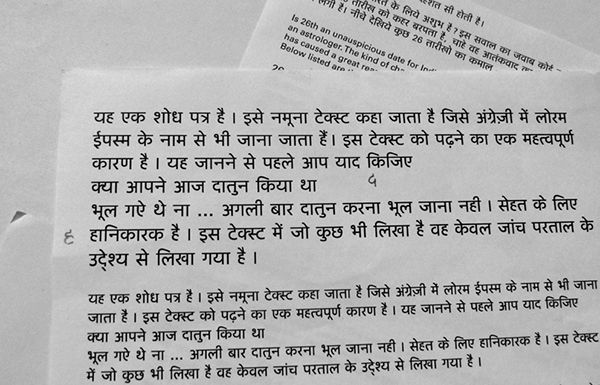 दहशत सी होती है।
के लिये अशुभ है? इस सवाल का जवाब कोई
लगी हैं। नीचे देखिये कुछ 26 तारीखों का कमाल
Is 26th an unauspicious date for
an astrologer. The kind of
has caused a great
Below listed are
यह एक शोध पत्र है । इसे नमूना टेक्स्ट कहा जाता है जिसे अंग्रेज़ी में लोरम
ईपस्म के नाम से भी जाना जाता हैं। इस टेक्स्ट को पढ़ने का एक महत्वपूर्ण
कारण है । यह जानने से पहले आप याद किजिए
क्या आपने आज दातुन किया था
भूल गऐ थे ना ... अगली बार दातुन करना भूल जाना नही । सेहत के लिए
हानिकारक है । इस टेक्स्ट में जो कुछ भी लिखा है वह केवल जांच परताल के
उद्देश्य से लिखा गया है ।
यह एक शोध पत्र है । इसे नमूना टेक्स्ट कहा जाता है जिसे अंग्रेज़ी में लोरम ईपस्म के नाम से भी जाना
जाता है । इस टेक्स्ट को पढ़ने का एक महत्वपूर्ण कारण है । यह जानने से पहले आप याद किजिए
क्या आपने आज दातुन किया था
भूल गऐ थे ना ... अगली बार दातुन करना भूल जाना नही । सेहत के लिए हानिकारक है । इस टेक्स्ट
में जो कुछ भी लिखा है वह केवल जांच परताल के उद्देश्य से लिखा गया है ।